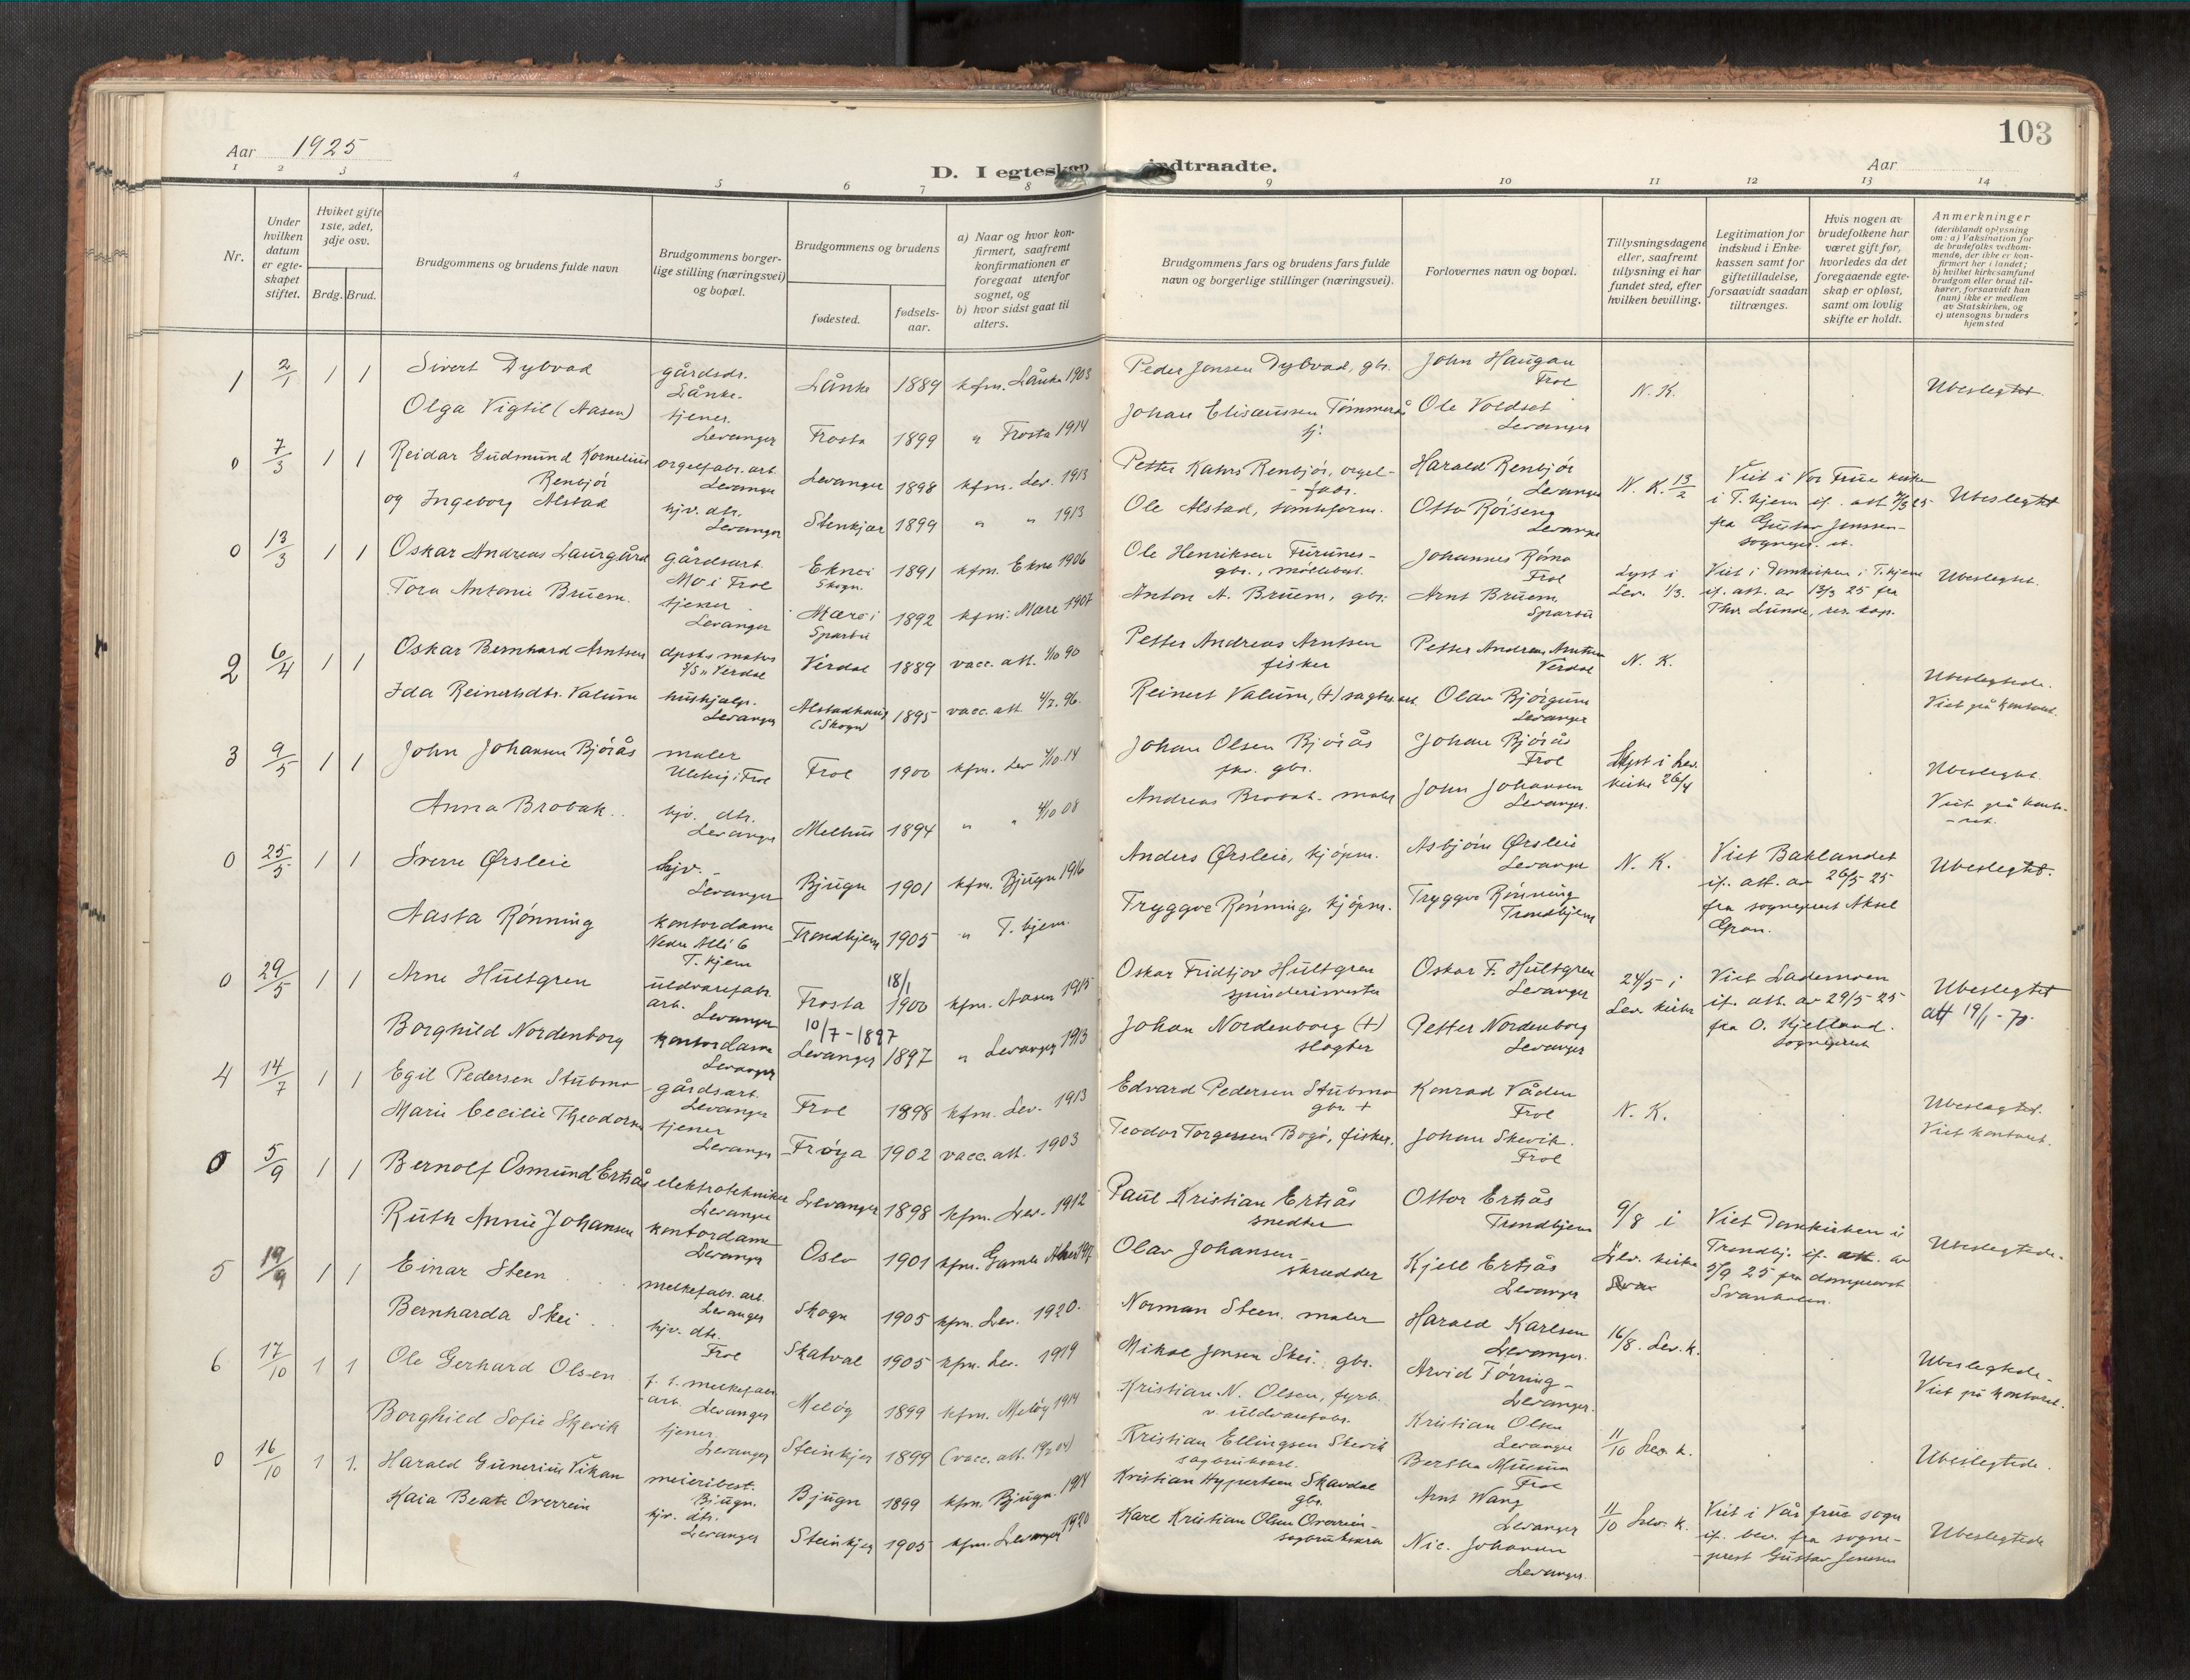 103
Aar 1925
D. I egteskap indtraadte.
Aar
1 2 3 4 5 6 7 8 9 10 11 12 13 14
Nr.
Under hvilken datum er egteskapet stiftet.
Hviket gifte 1ste, 2det, 3dje osv.
Brdg. Brud.
Brudgommens og brudens fulde navn
Brudgommens borgerlige stilling (næringsvei) og bopæl.
Brudgommens og brudens
fødested.
fødselsaar.
a) Naar og hvor konfirmert, saafremt konfirmationen er foregaat utenfor sognet, og
b) hvor sidst gaat til alters.
Brudgommens fars og brudens fars fulde navn og borgerlige stillinger (næringsvei).
Forlovernes navn og bopæl.
Tillysningsdagene eller, saafremt tillysning ei har fundet sted, efter hvilken bevilling.
Legitimation for indskud i Enkekassen samt for giftetilladelse, forsaavidt saadan tiltrænges.
Hvis nogen av brudefolkene har været gift før, hvorledes da det foregaaende egteskap er opløst, samt om lovlig skifte er holdt.
Anmerkninger (deriblandt oplysning om: a) Vaksination for de brudefolks vedkommende, der ikke er konfirmert her i landet; b) hvilket kirkesamfund brudgom eller brud tilhører, forsaavidt han (hun) ikke er medlem av Statskirken, og c) utensogns bruders hjemsted
1 2/1 1 1 Sivert Dybvad gårdsdr. Lånke. Lånke 1889 kfm. Lånke 1903 Peder Jensen Dybvad, gbr. John Haugan Frol N. K. Ubeslegtet
Olga Vigtil (Aasen) tjener. Levanger Frosta 1899 " Frosta 1914 Johan Elisæussen Tømmerås Ole Voldset Levanger
0 7/3 1 1 Reidar Gudmund Kornelius Renbjør orgelfabr. arb. Levanger Levanger 1898 kfm. Lev. 1913 Petter Renbjør, orgelfabr. Harald Renbjør Levanger N. K. 13/2 Viet i Vor Frue kirke i T.hjem if. att. 7/3 25 fra Gustav Jenssen sognepr. Ubeslegtet
og Ingeborg Alstad hjv. dtr. Levanger Stenkjær 1899 " " 1913 Ole Alstad, Otto Røiseng Levanger
0 13/3 1 1 Oskar Andreas Laurgård gårdsarb. Mo i Frol Ekne i Skogn. 1891 kfm. Ekne 1906 Ole Henriksen Furunes gbr., møllebest. Johannes Rømo Frol Lyst i Lev. 1/3. Viet i Domkirken i T.hjem if. att. av 13/3 25 fra Thv. Lunde, res. cap. Ubeslegtet.
Tora Antonie Bruem. tjener Levanger Mære i Sparbu 1892 kfm. Mære 1907 Anton A. Bruem, gbr. Arnt Bruem Sparbu
2 6/4 1 1 Oskar Bernhard Arntsen S/S "Verdal Verdal 1889 vacc. att. 1/10 90 Petter Andreas Arntsen fisker Petter Andreas Arntsen Verdal N. K. Ubeslegtede. Viet på kontoret.
Ida Reinertsdtr. Valum hushjælp. Levanger Alstadhaug (Skogn) 1895 vacc. att. 4/2. 96. Reinert Valum, (+) sagbr.arb. Olav Bjørgum Levanger
3 9/5 1 1 John Johansen Bjørås maler Frol Frol 1900 kfm. Lev 4/10.14 Johan Olsen Bjørås gbr. Johan Bjørås Frol Lyst i Lev. kirke 26/4 Ubeslegtet. Viet på kontoret.
Anna Brobak. hjv. dtr. Levanger Melhus 1894 " " 4/10 08 Andreas Brobak. maler John Johansen Levanger.
0 25/5 1 1 Sverre Ørsleie hjv. Levanger Bjugn 1901 kfm. Bjugn 1916 Anders Ørsleie, kjøpm. Asbjørn Ørsleie Levanger N. K. Viet Baklandet if. att. av 26/5 25 fra sogneprest Aksel Gran. Ubeslegtet.
Aasta Rønning kontordame Nedre Allé 6 T.hjem Trondhjem 1905 " T.hjem. Tryggve Rønning, kjøpm. Tryggve Rønning Trondhjem
0 29/5 1 1 Arne Hultgren uldvarefabr. arb. Levanger Frosta 18/1 1900 kfm. Aasen 1915 Oskar Fridtjov Hultgren spinderimester Oskar F. Hultgren Levanger 24/5 i Lev. kirke Viet Lademoen if. att. av 29/5 25 fra O. Kjelland. sogneprest Ubeslegtet att 19/1 - 70.
Borghild Nordenborg kontordame Levanger 10/7 - 1897 Levanger 1897 " Levanger 1913 Johan Nordenborg (+) slagter Petter Nordenborg Levanger
4 14/7 1 1 Egil Pedersen Stubmo gårdsarb. Levanger Frol 1898 kfm. Lev. 1913 Edvard Pedersen Stubmo gbr. + Konrad Våden Frol N. K. Ubeslegtet. Viet kontoret.
Marie Cecilie Theodorsen tjener Levanger Frøya 1902 vacc. att. 1903 Teodor Torgersen Bogø, fisker. Johan Skevik. Frol
0 5/9 1 1 Bernolf Osmund Ertsås elektrotekniker Levanger Levanger 1898 kfm. Lev. 1912 Paul Kristian Ertsås snedker Ottor Ertsås Trondhjem 9/8 i Lev. kirke Viet Domkirken i Trondhj. if. att. av 5/9 25 fra domprovst Svanholm. Ubeslegtede.
Ruth Annie Johansen kontordame Levanger Oslo 1901 kfm. Gamle Aker 1917 Olav Johansen skrædder Kjell Ertsås Levanger
5 19/9 1 1 Einar Steen melkefabr. arb. Levanger Skogn 1905 kfm. Lev. 1920. Norman Steen, maler Harald Karlsen Levanger. 16/8. Lev. k. Ubeslegtede. Viet på kontoret.
Bernharda Skei hjv. dtr. Frol Skatval 1905 kfm. Lev. 1919 Mikal Jensen Skei, gbr. Arvid Tørring Levanger.
6 17/10 1 1 Ole Gerhard Olsen melkefabr. arb. Levanger Meløy 1899 kfm. Meløy 1914 Kristian N. Olsen, fyrb. v. uldvarefabr. Kristian Olsen Levanger 11/10 Lev. k. Ubeslegtede.
Borghild Sofie Skevik tjener Levanger Steinkjer 1899 (vacc. att. 19/2 04) Kristian Ellingsen Skevik sagbruksarb. Berttha Musum Frol
0 16/10 1 1. Harald Gunerius Vikan meieribest. Bjugn. Bjugn 1899 kfm. Bjugn. 1914 Kristian Hypertsen Skavdal gbr. Arnt Wang Levanger 11/10 Lev. k. Viet i Vår frue sogn if. bev. fra sogneprest Gustav Jenssen Ubeslegtede
Kaia Beate Overrein hjv. dtr. Levanger Steinkjer 1905 kfm. Levanger 1920 Karl Kristian Olsen Overrein Nic. Johansen Levanger.